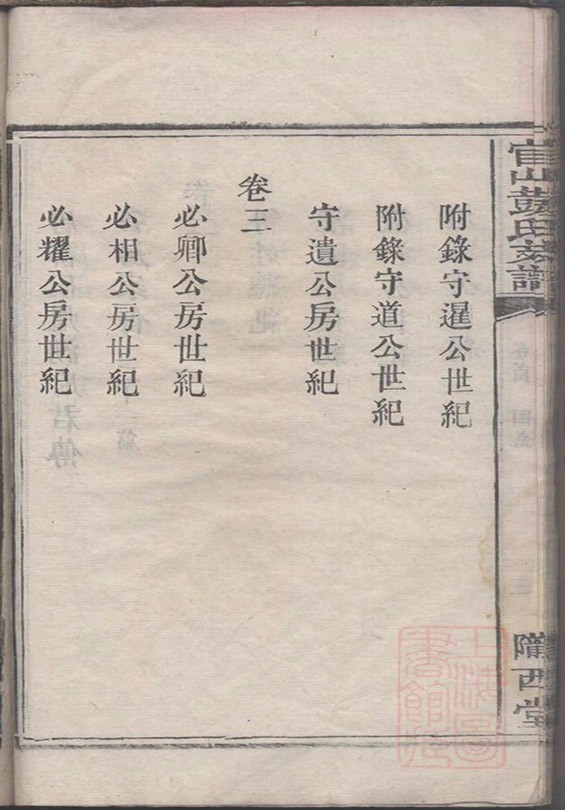 附錄守暹公世紀
附錄守道公世紀
守遺公房世紀
卷三
必卿公房世紀
必相公房世紀
必耀公房世紀
官山彭氏支譜
隴西堂
上海圖書館藏